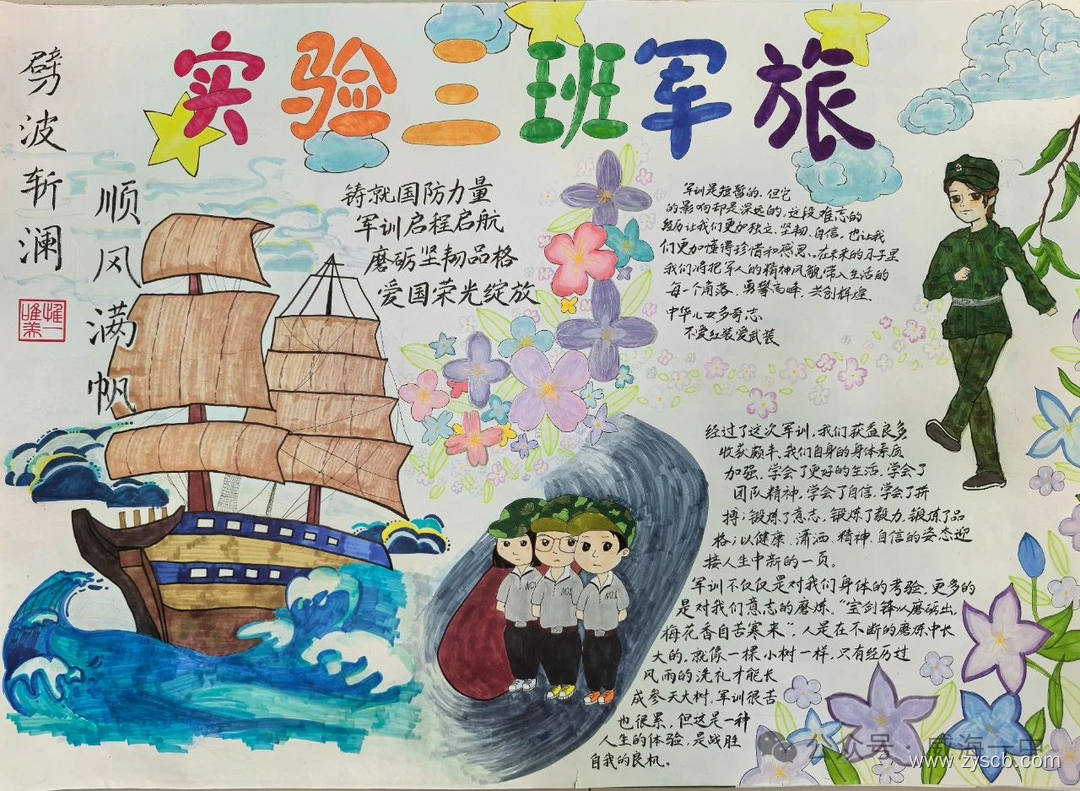 实验三班军旅
劈波斩澜
顺风满帆
唯
美
惟
一
铸就国防力量
军训启程启航
磨砺坚韧品格
爱国荣光绽放
军训是短暂的，但它
的影响却是深远的，这段难忘的
经历让我们更加独立、坚韧、自信，也让我
们更加懂得珍惜和感恩。在未来的日子里
我们将把军人的精神风貌带入生活的
每一个角落，勇攀高峰，共创辉煌
中华儿女多奇志
不爱红装爱武装
经过了这次军训，我们获益良多
收获颇丰，我们自身的身体素质
加强，学会了更好的生活，学会了
团队精神，学会了自信，学会了拼
搏；锻炼了意志，锻炼了毅力，锻炼了品
格；以健康、潇洒、精神、自信的姿态迎
接人生中新的一页。
军训不仅仅是对我们身体的考验，更多的
是对我们意志的磨炼，“宝剑锋从磨砺出，
梅花香自苦寒来”，人是在不断的磨炼中长
大的，就像一棵小树一样，只有经历过
风雨的洗礼才能长
成参天大树，军训很苦
也很累，但这是一种
人生的体验，是战胜
自我的良机。
公众号·威海一中
www.zyscb.com